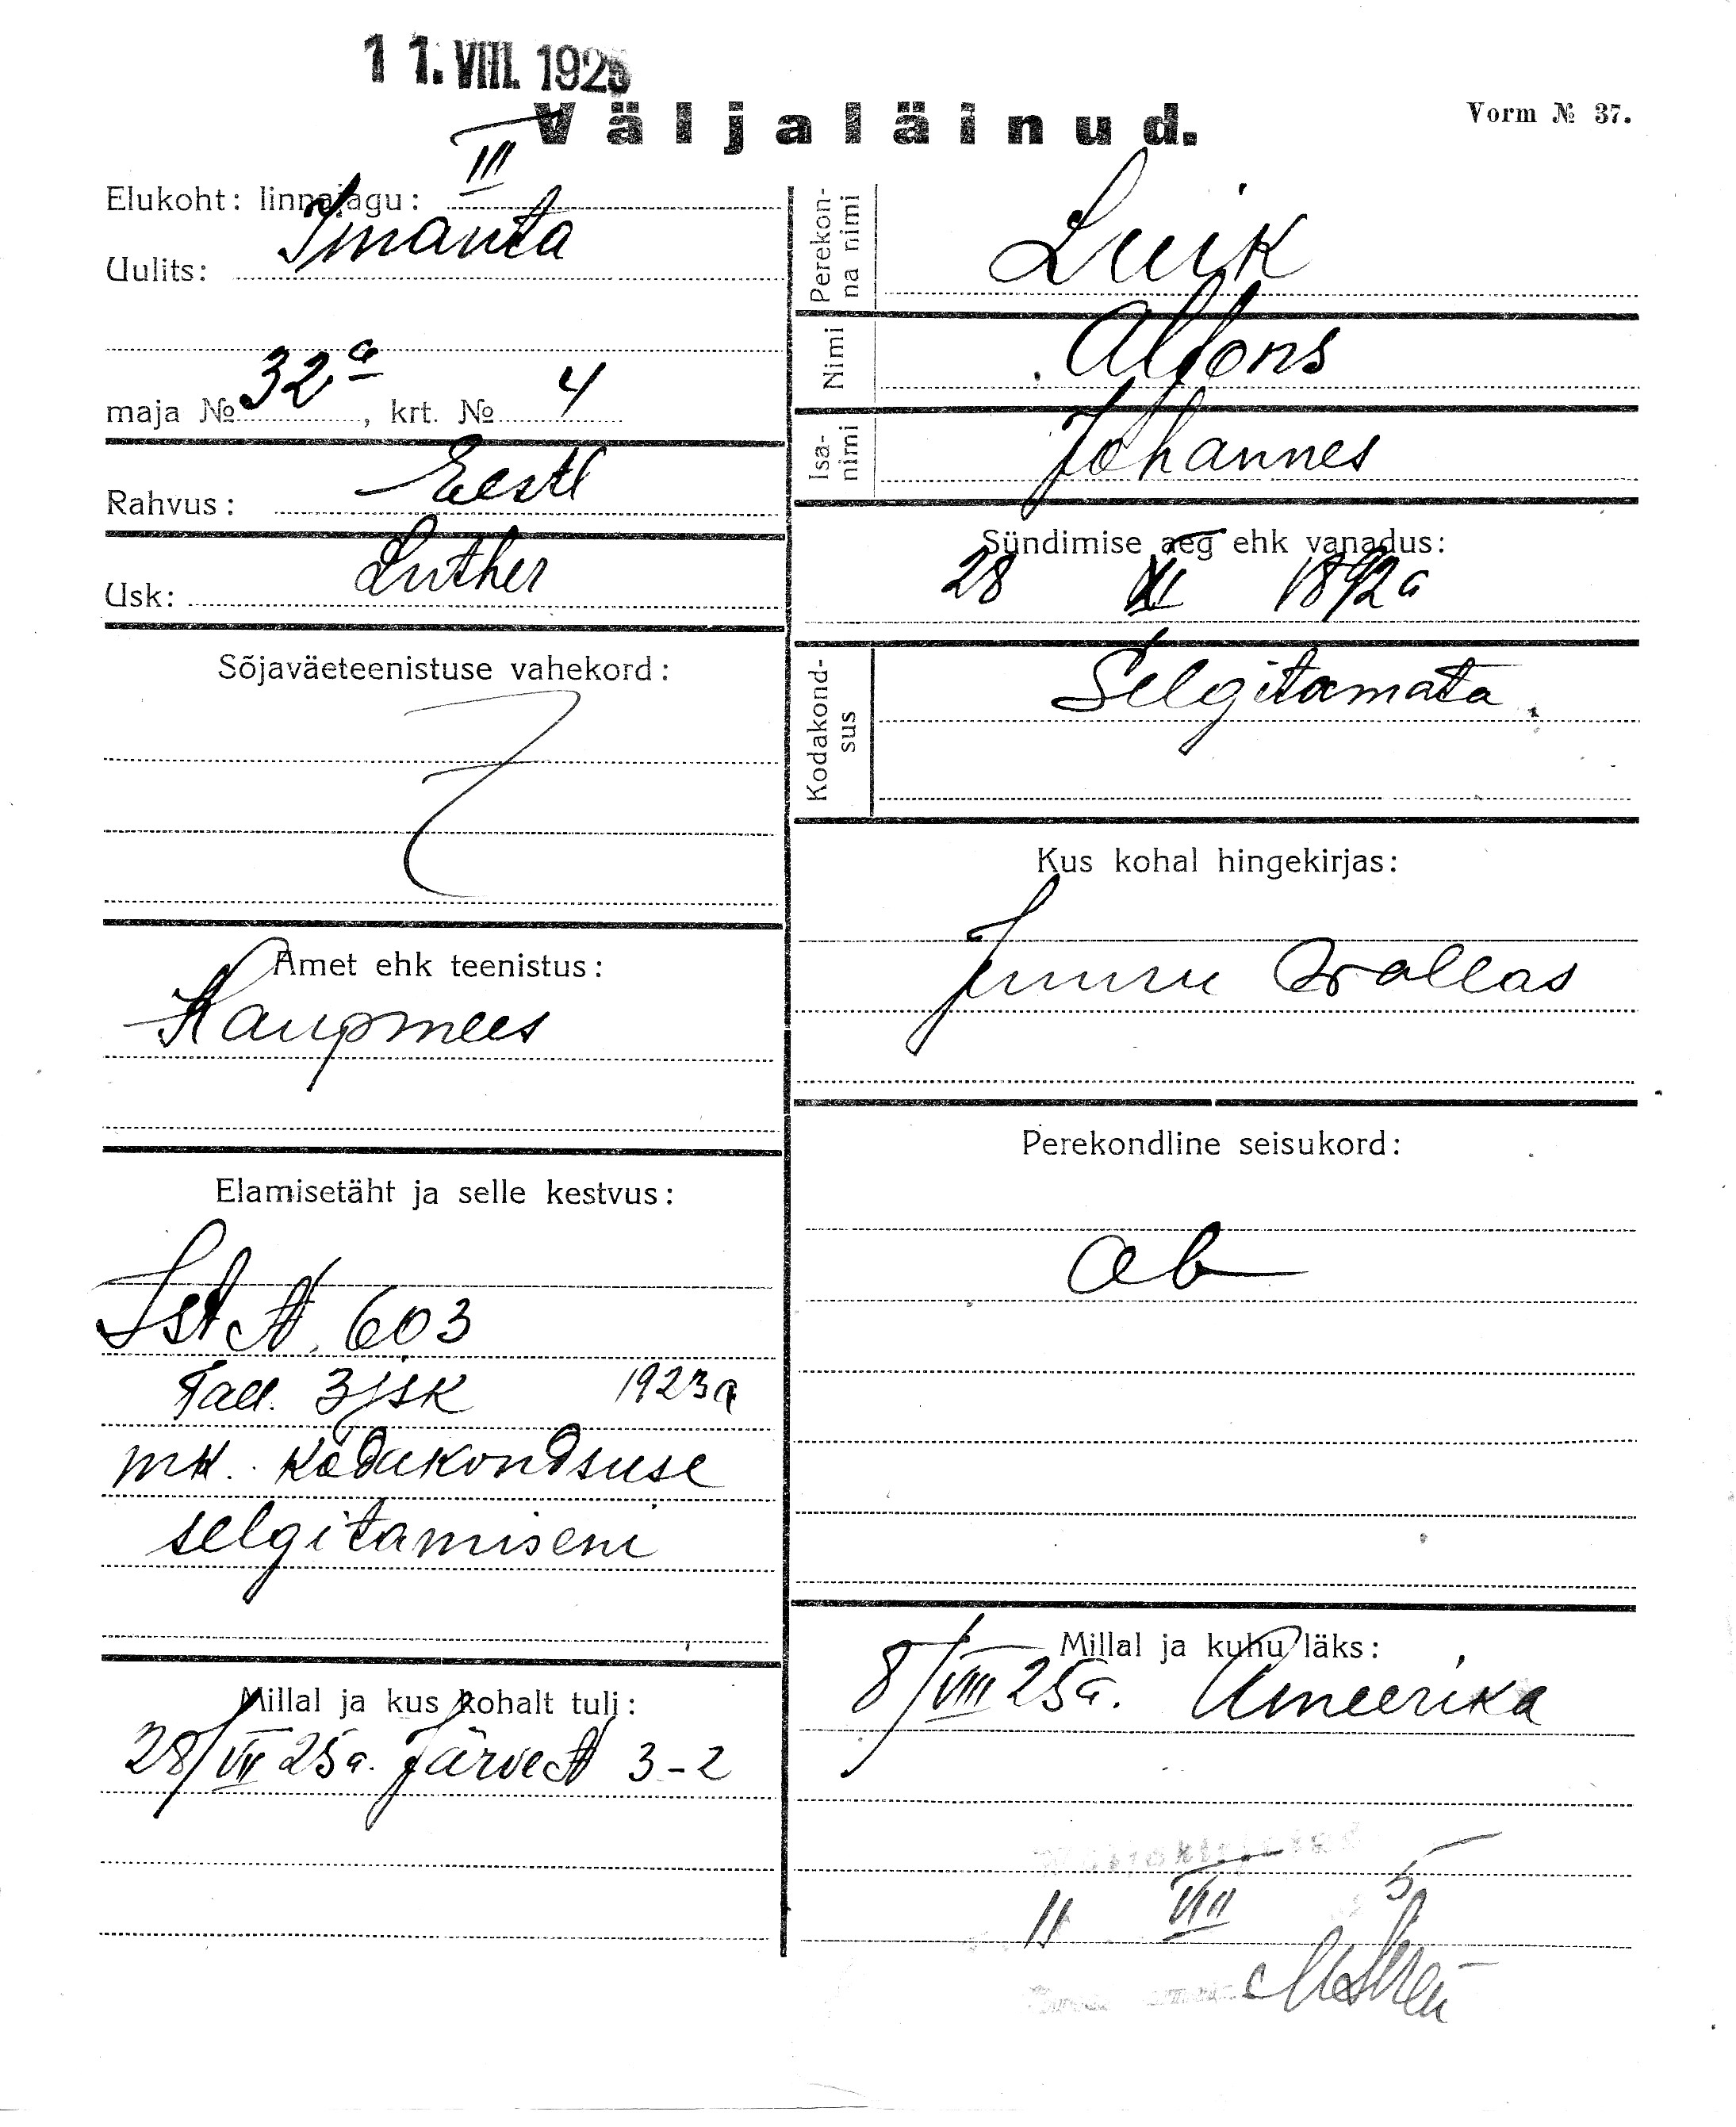 11. VIII. 1925
Väljaläinud.
Vorm № 37.
Elukoht: linnajagu: III
Uulits: Imanta
maja № 32a, krt. № 4
Rahvus: Eesti
Usk: Luther
Sõjaväeteenistuse vahekord:
Amet ehk teenistus:
Kaupmees
Elamisetäht ja selle kestvus:
Ist № 603
Tall. 3 jsk 1923a
mk. kodakondsuse
selgitamiseni
Millal ja kus kohalt tuli:
28/VII 25a. Järve № 3-2
Perekonna nimi Luik
Nimi Alfons
Isanimi Johannes
Sündimise aeg ehk vanadus:
28 XI 1892a
Kodakondsus Selgitamata.
Kus kohal hingekirjas:
Juuru wallas
Perekondline seisukord:
ab
Millal ja kuhu läks:
8/VIII 25a. Ameerika
11 VIII 5